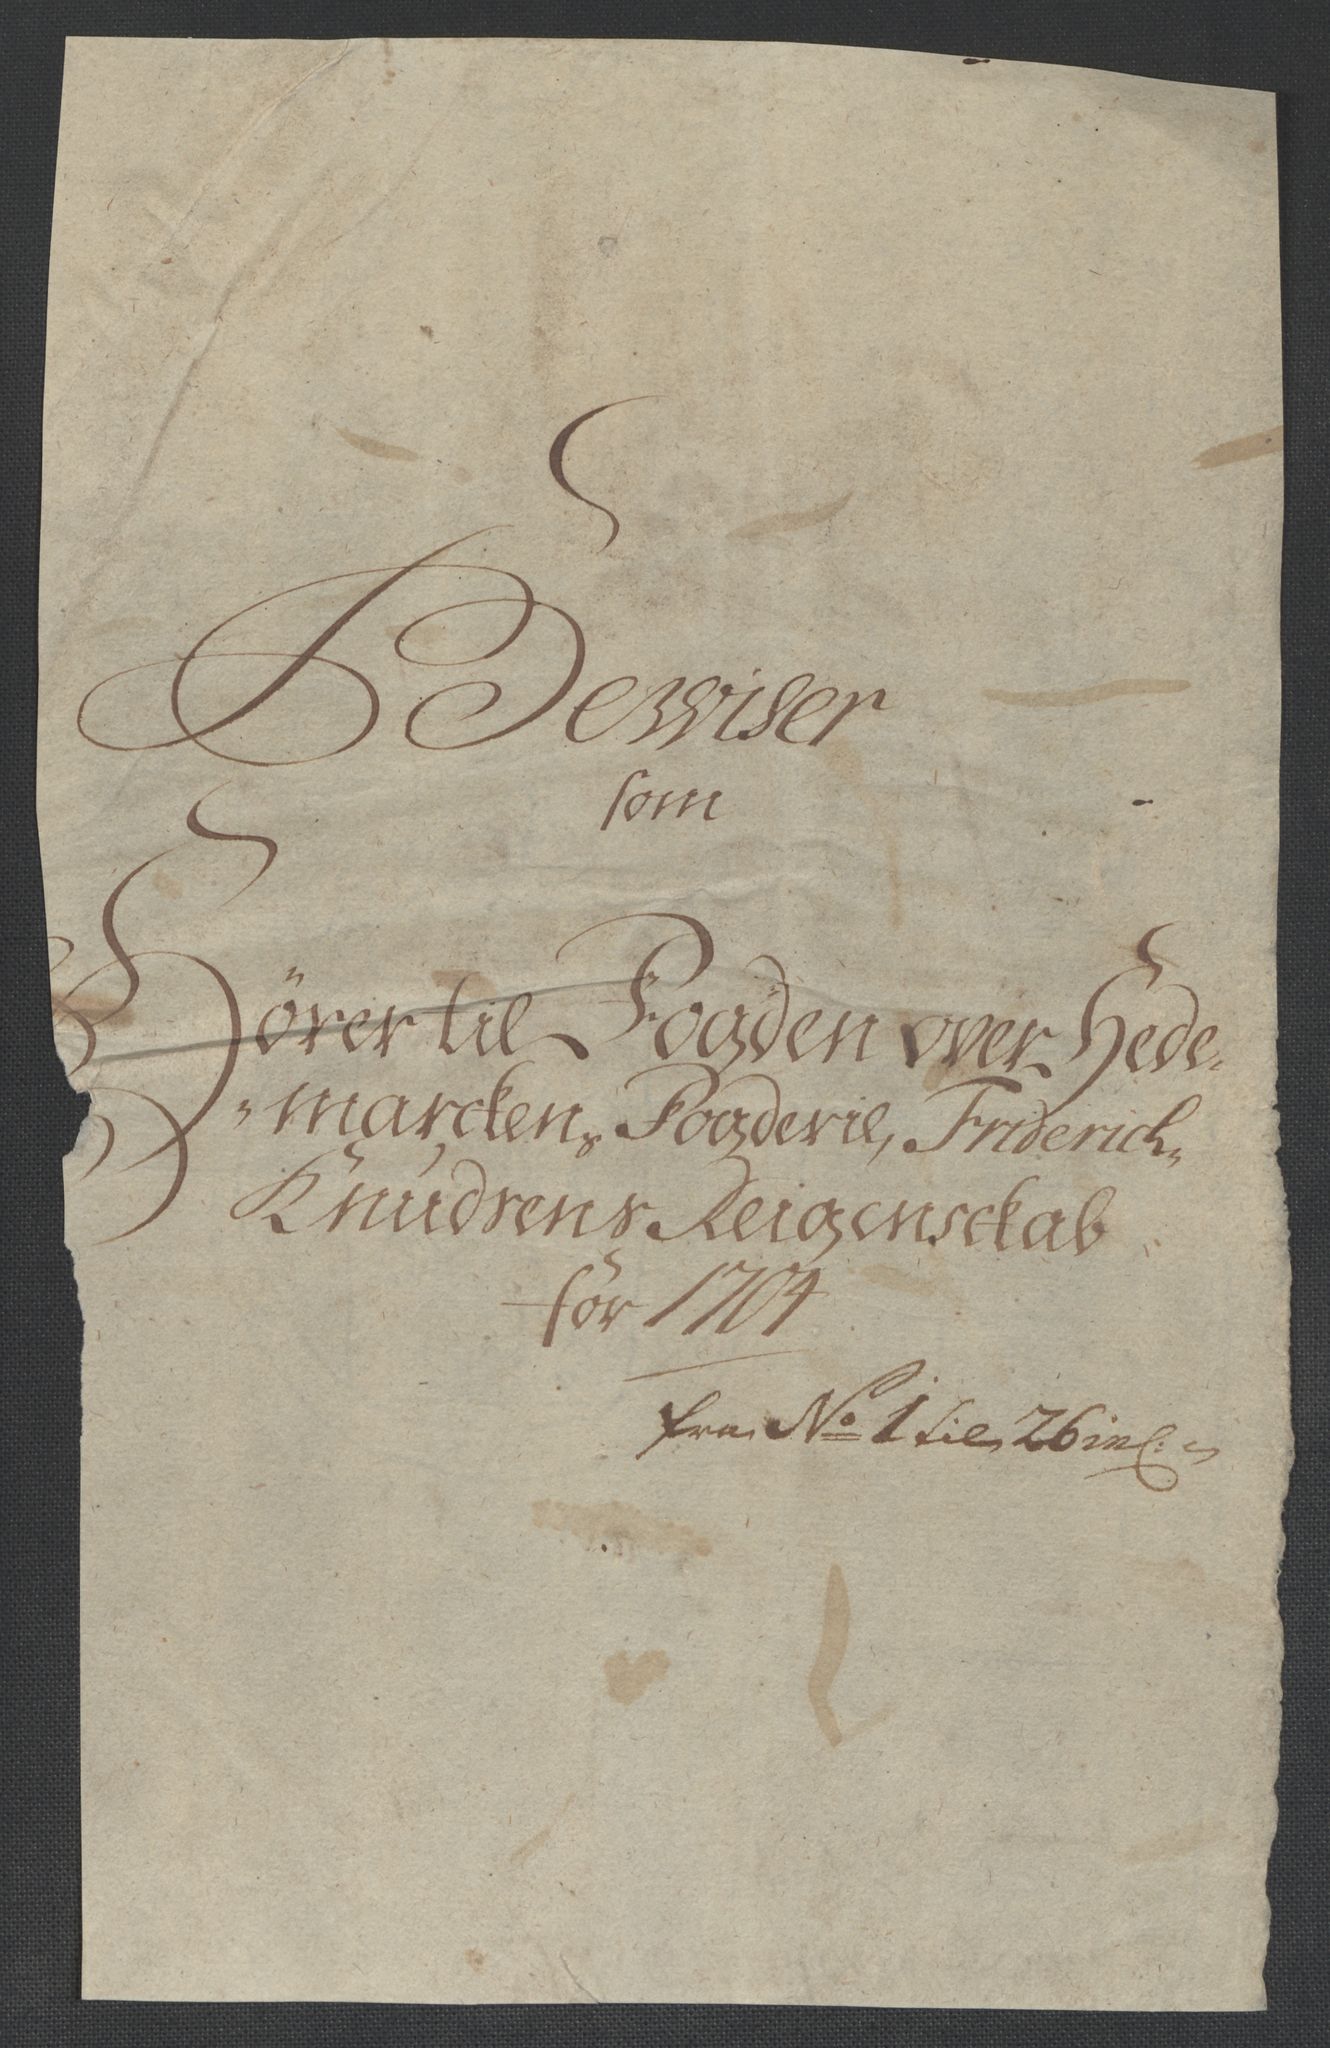 Bewiser
som
Hörer til Fogden over Hede„
„marckens Fogderie, Friderich
Knudsens Reigenskab
för 1704
fra No 1 til 26 incl: